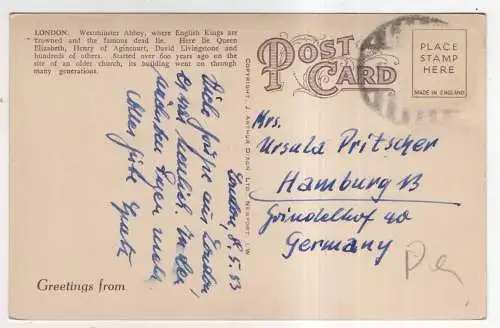 LONDON. Westminster Abbey, where English Kings are
crowned and the famous dead lie. Here lie Queen
Elizabeth, Henry of Agincourt, David Livingstone and
hundreds of others. Started over 600 years ago on the
site of an older church, its building went on through
many generations.
POST
CARD
PLACE
STAMP
HERE
MADE IN ENGLAND
COPYRIGHT, J. ARTHUR DIXON LTD. NEWPORT, I.W.
London, 8.5.53
Viele Grüße aus London,
es ist
Tage
Alles Gute
Mrs.
Ursula Pritscher
Hamburg 13
Grindelhof 40
Germany
Greetings from